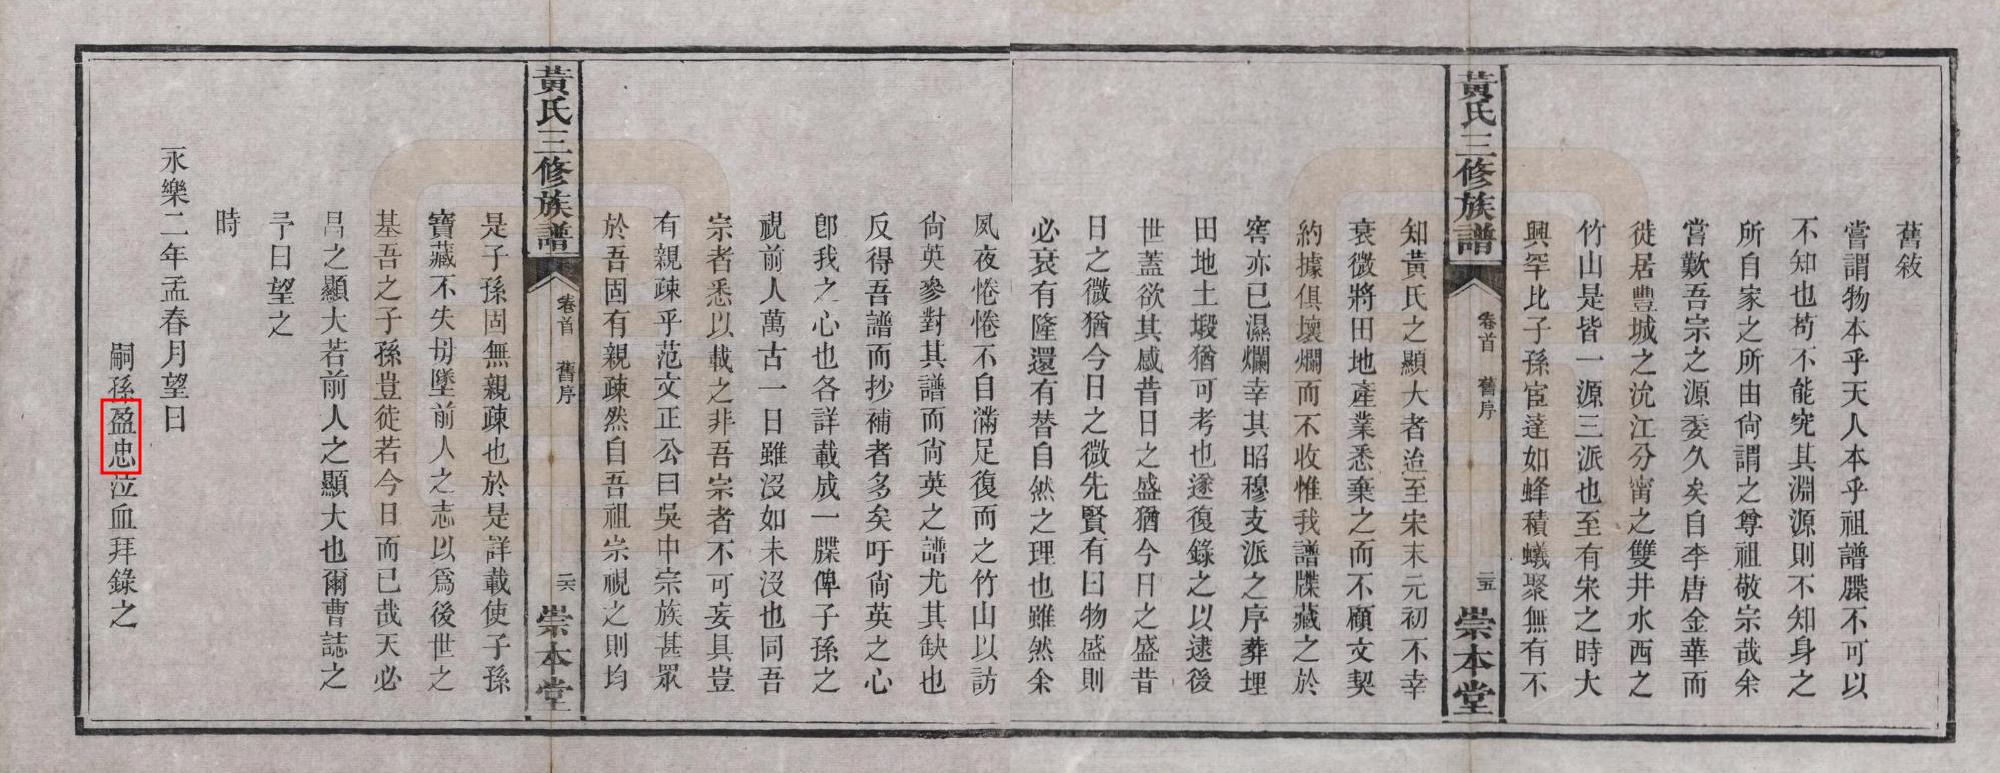 舊敘
嘗謂物本乎天人本乎祖譜牒不可以
不知也苟不能究其淵源則不知身之
所自家之所由尙謂之尊祖敬宗哉余
嘗歎吾宗之源委久矣自李唐金華而
徙居豐城之沇江分甯之雙井水西之
竹山是皆一源三派也至有宋之時大
興罕比子孫宦達如蜂積蟻聚無有不
黃氏三修族譜 卷首 舊序 二五 崇本堂
知黃氏之顯大者迨至宋末元初不幸
衰微將田地產業悉棄之而不顧文契
約據俱壞爛而不收惟我譜牒藏之於
窖亦已濕爛幸其昭穆支派之序葬埋
田地土塅猶可考也遂復錄之以逮後
世蓋欲其感昔日之盛猶今日之盛昔
日之微猶今日之微先賢有曰物盛則
必衰有隆還有替自然之理也雖然余
夙夜惓惓不自滿足復而之竹山以訪
尙英參對其譜而尙英之譜尤其缺也
反得吾譜而抄補者多矣吁尙英之心
卽我之心也各詳載成一牒俾子孫之
視前人萬古一日雖沒如未沒也同吾
宗者悉以載之非吾宗者不可妄具豈
有親疎乎范文正公曰吳中宗族甚眾
於吾固有親疎然自吾祖宗視之則均
黃氏三修族譜 卷首 舊序 二六 崇本堂
是子孫固無親疎也於是詳載使子孫
寶藏不失毋墜前人之志以爲後世之
基吾之子孫豈徒若今日而已哉天必
昌之顯大若前人之顯大也爾曹誌之
予曰望之
時
永樂二年孟春月望日
嗣孫盈忠泣血拜錄之